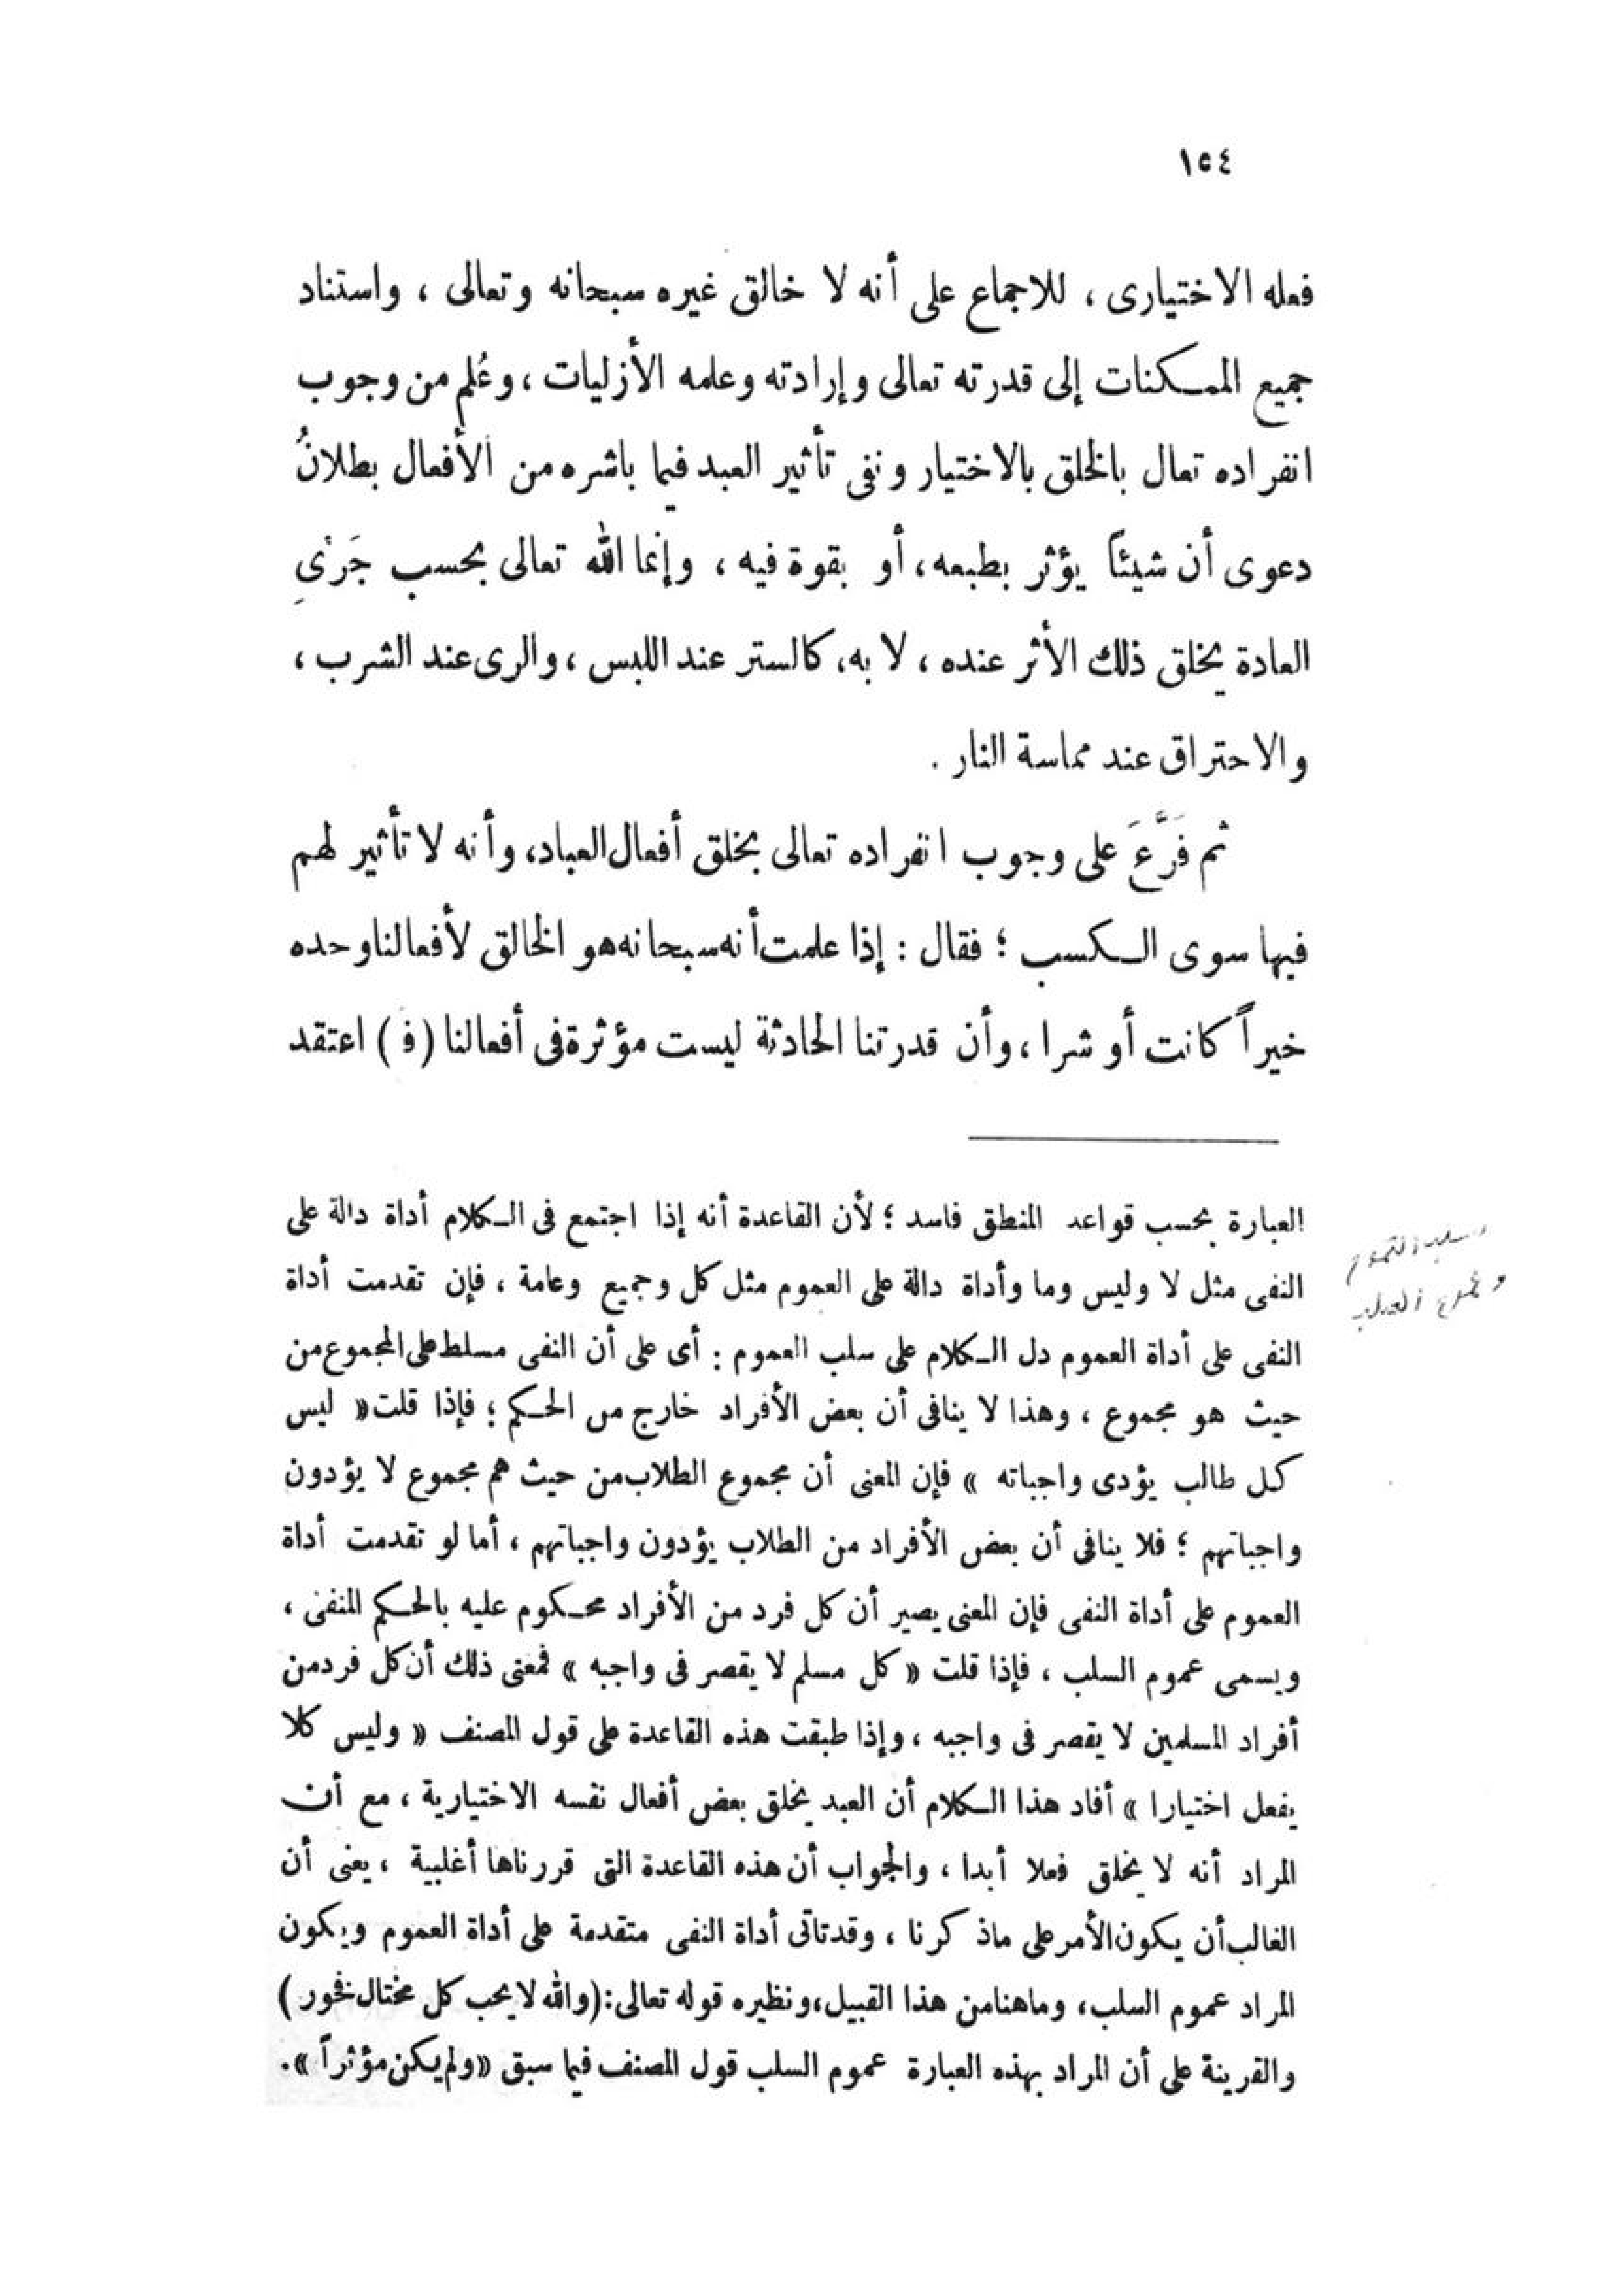 ١٥٤
فعله الاختيارى ، للاجماع على أنه لا خالق غيره سبحانه وتعالى ، واستناد
جميع الممكنات إلى قدرته تعالى وإرادته وعلمه الأزليات ، وعُلم من وجوب
انفراده تعال بالخلق بالاختيار ونفى تأثير العبد فيما باشره من الأفعال بطلانُ
دعوى أن شيئاً يؤثر بطبعه ، أو بقوة فيه ، وإنما الله تعالى بحسب جَرْىِ
العادة يخلق ذلك الأثر عنده ، لا به ، كالستر عند اللبس ، والرى عند الشرب ،
والاحتراق عند مماسة النار .
ثم فَرَّعَ على وجوب انفراده تعالى بخلق أفعال العباد ، وأنه لا تأثير لهم
فيها سوى الكسب ؛ فقال : إذا علمت أنه سبحانه هو الخالق لأفعالنا وحده
خيراً كانت أو شرا ، وأن قدرتنا الحادثة ليست مؤثرة فى أفعالنا ( فَ ) اعتقد
العبارة بحسب قواعد المنطق فاسد ؛ لأن القاعدة أنه إذا اجتمع فى الكلام أداة دالة على
النفى مثل لا وليس وما وأداة دالة على العموم مثل كل وجميع وعامة ، فإن تقدمت أداة
النفى على أداة العموم دل الكلام على سلب العموم : أى على أن النفى مسلط على المجموع من
حيث هو مجموع ، وهذا لا ينافى أن بعض الأفراد خارج من الحكم ؛ فإذا قلت « ليس
كل طالب يؤدى واجباته » فإن المعنى أن مجموع الطلاب من حيث هم مجموع لا يؤدون
واجباتهم ؛ فلا ينافى أن بعض الأفراد من الطلاب يؤدون واجباتهم ، أما لو تقدمت أداة
العموم على أداة النفى فإن المعنى يصير أن كل فرد من الأفراد محكوم عليه بالحكم المنفى ،
ويسمى عموم السلب ، فإذا قلت « كل مسلم لا يقصر فى واجبه » فمعنى ذلك أن كل فرد من
أفراد المسلمين لا يقصر فى واجبه ، وإذا طبقت هذه القاعدة على قول المصنف « وليس كلا
يفعل اختيارا » أفاد هذا الكلام أن العبد يخلق بعض أفعال نفسه الاختيارية ، مع أن
المراد أنه لا يخلق فعلا أبدا ، والجواب أن هذه القاعدة التى قررناها أغلبية ، يعنى أن
الغالب أن يكون الأمر على ماذكرنا ، وقد تأتى أداة النفى متقدمة على أداة العموم ويكون
المراد عموم السلب ، وما هنا من هذا القبيل ، ونظيره قوله تعالى : ( والله لا يحب كل مختال فخور )
والقرينة على أن المراد بهذه العبارة عموم السلب قول المصنف فيما سبق « ولم يكن مؤثراً » .
سلب العموم
وعموم السلب